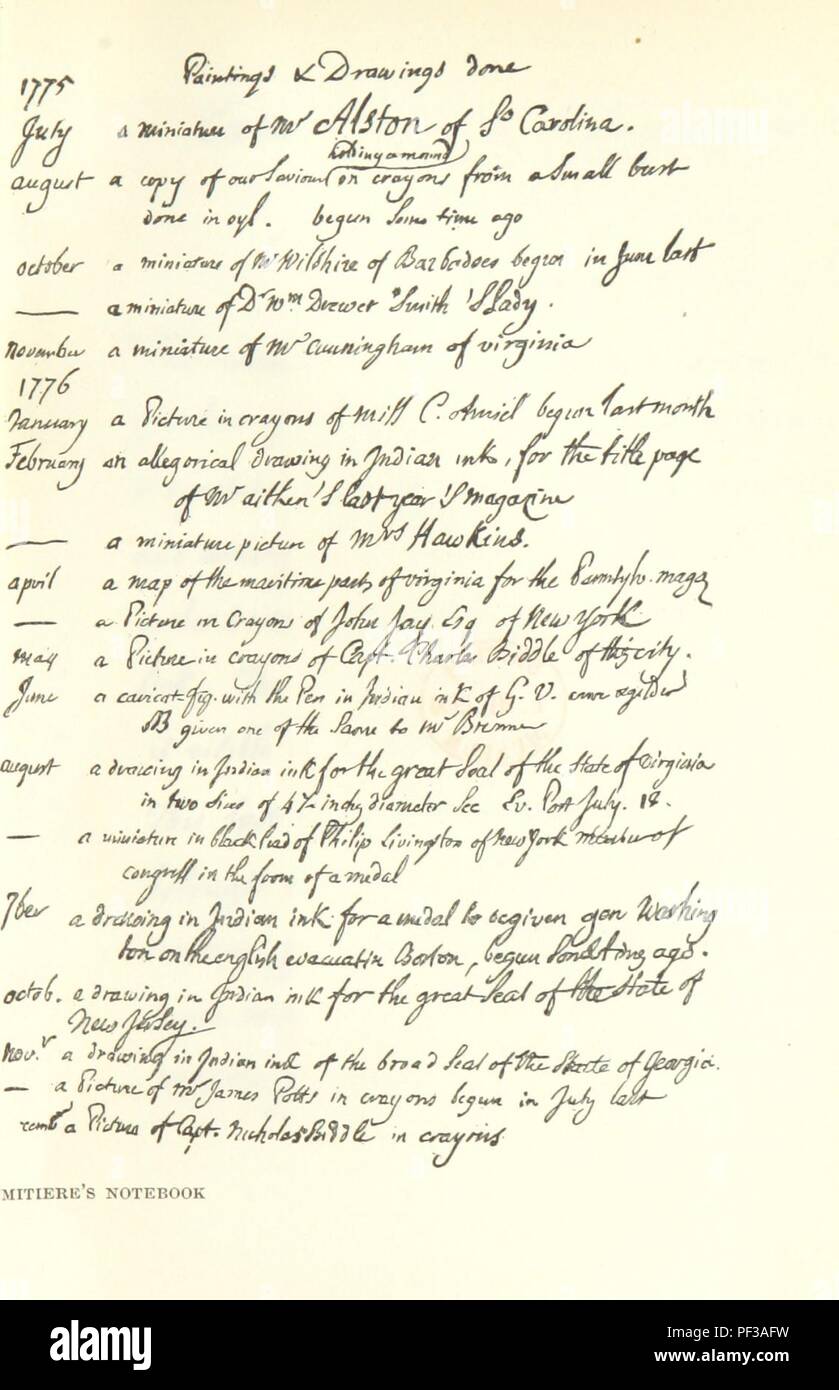 1775 Paintings & Drawings done
July a miniature of Mr Alston of So Carolina.
holding a mound
august a copy of our Saviour in crayons from a small bust
done in oyl. begun some time ago
october a miniature of Mr Wilshire of Barbadoes begun in June last
— a miniature of Dr Wm Drewet Smith 's Lady.
november a miniature of Mr Cunningham of virginia
1776
January a Picture in crayons of Miss C. begun last month
February an allegorical drawing in Indian ink, for the title page
of Mr aitken's last year's magazine
— a miniature picture of Mrs Hawkins.
april a map of the maritime parts of virginia for the Pennsylv. magaz
— a Picture in Crayons of John Jay Esq of New York
may a Picture in crayons of Capt. Charles Biddle of this city.
June a caricat fig. with the Pen in Indian ink of G. V.
NB given one of the same to Mr
august a drawing in Indian ink for the great Seal of the State of virginia
in two sides of 4½ inch diameter See Ev. Post July. 18.
— a miniature in black lead of Philip Livingston of New York member of
congress in the form of a medal
7ber a drawing in Indian ink for a medal to be given gen Washing
ton on the english evacuatin Boston, begun some time ago.
octob. a drawing in Indian ink for the great Seal of the State of
New Jersey.
Nov.r a drawing in Indian ink of the broad Seal of the State of Georgia.
— a Picture of Mr James Potts in crayons begun in July last
cembr a Picture of Capt. Nicholas Biddle in crayons
MITIERE'S NOTEBOOK
alamy
alamy
Image ID: PF3AFW
www.alamy.com